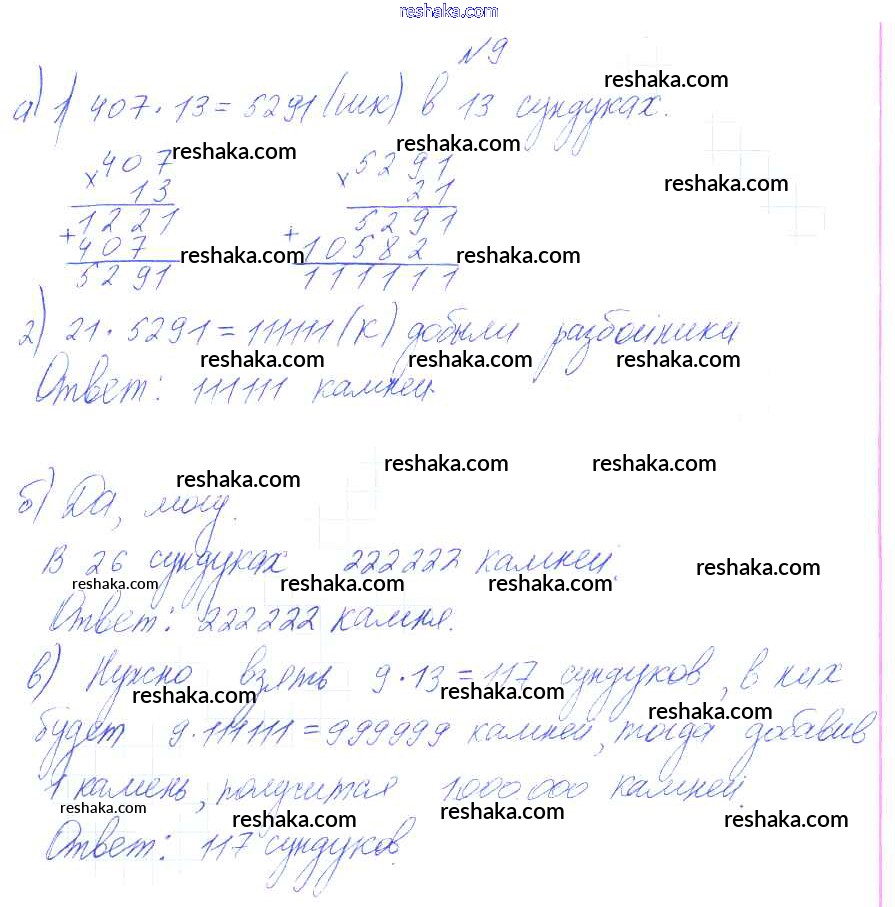 reshaka.com
№9
reshaka.com
а) 1) 407 · 13 = 5291 (шк) в 13 сундуках.
reshaka.com reshaka.com
×407 ×5291 reshaka.com
13 21
1221 5291
+407 reshaka.com +10582 reshaka.com
5291 111111
2) 21 · 5291 = 111111 (к) добыли разбойники
reshaka.com reshaka.com reshaka.com
Ответ: 111111 камней.
reshaka.com reshaka.com
reshaka.com
б) Да, могу.
В 26 сундуках 222222 камней.
reshaka.com reshaka.com reshaka.com reshaka.com
Ответ: 222222 камня.
в) Нужно взять 9 · 13 = 117 сундуков, в них
reshaka.com reshaka.com reshaka.com
будет 9 · 111111 = 999999 камней, тогда добавив
1 камень, получится 1000 000 камней.
reshaka.com reshaka.com reshaka.com reshaka.com
Ответ: 117 сундуков.